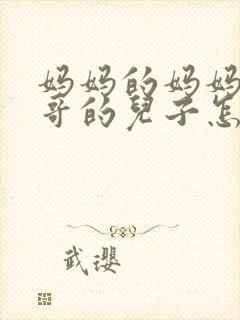 妈妈的妈妈
哥的兒子怎
武瓔